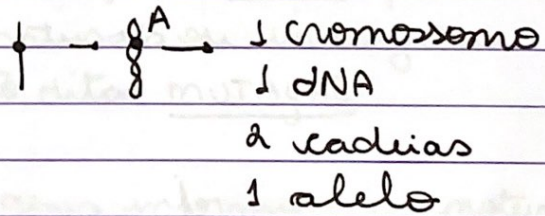 A
1 cromossomo
1 DNA
2 cadeias
1 alelo